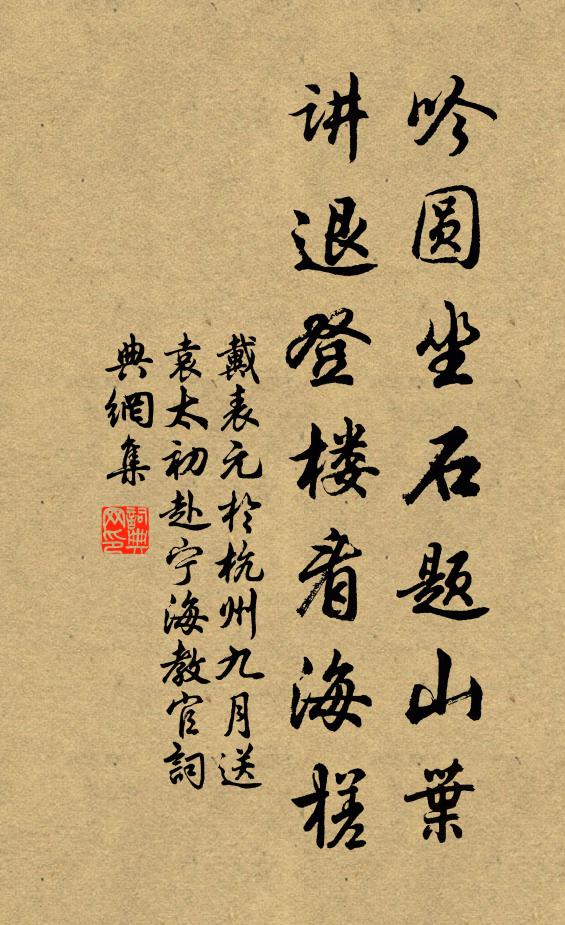 吟圆坐石题山叶
讲退登楼看海槎
戴表元於杭州九月送
袁太初赴宁海教官詞
典網集
詞典网印